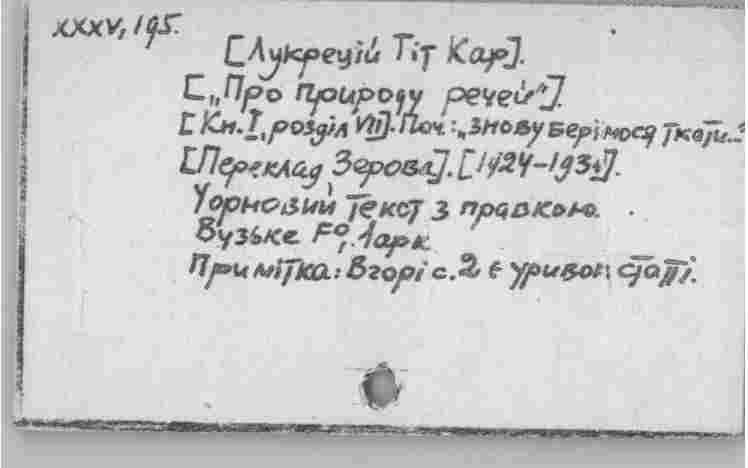 XXXV, 195.
[Лукрецій Тіт Кар].
[„Про природу речей"].
[Кн. I, розділ VII]. Поч.: „Знову берімося ткати..."
[Переклад Зерова]. [1924–193].
Чорновий текст з правкою.
Вузьке F°, 1 арк
Примітка: Вгорі с. 2 є уривок статті.